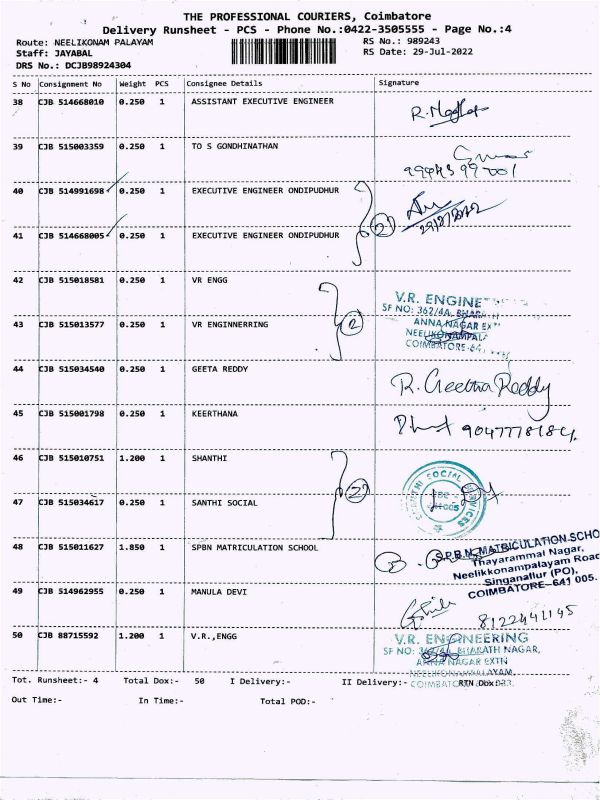 THE PROFESSIONAL COURIERS, Coimbatore
Delivery Runsheet - PCS - Phone No.:0422-3505555 - Page No.:4
Route: NEELIKONAM PALAYAM RS No.: 989243
Staff: JAYABAL RS Date: 29-Jul-2022
DRS No.: DCJB98924304
S No Consignment No Weight PCS Consignee Details Signature
38 CJB 514668010 0.250 1 ASSISTANT EXECUTIVE ENGINEER
39 CJB 515003359 0.250 1 TO S GONDHINATHAN
40 CJB 514991698 0.250 1 EXECUTIVE ENGINEER ONDIPUDHUR
2
41 CJB 514668005 0.250 1 EXECUTIVE ENGINEER ONDIPUDHUR
42 CJB 515018581 0.250 1 VR ENGG
V.R. ENGINE
SF NO: 362/4A, BHARATH
43 CJB 515013577 0.250 1 VR ENGINNERRING 2
ANNA NAGAR EXT
NEELIKONAMPALA
COIMBATORE-64
44 CJB 515034540 0.250 1 GEETA REDDY
R. Geetha Reddy
45 CJB 515001798 0.250 1 KEERTHANA
9047778184
46 CJB 515010751 1.200 1 SHANTHI
2
SHANTHI SOCIAL SERVICES
47 CJB 515034617 0.250 1 SANTHI SOCIAL
48 CJB 515011627 1.850 1 SPBN MATRICULATION SCHOOL
S.P.B.N. MATRICULATION SCHO
Thayarammal Nagar,
Neelikkonampalayam Road
Singanallur (PO),
COIMBATORE-641 005.
49 CJB 514962955 0.250 1 MANULA DEVI
8122441145
50 CJB 88715592 1.200 1 V.R.,ENGG
V.R. ENGINEERING
SF NO: 362/4A, BHARATH NAGAR,
ANNA NAGAR EXTN
NEELIKONAMPALAYAM,
Tot. Runsheet:- 4 Total Dox:- 50 I Delivery:- II Delivery:- RTN Dox:-
Out Time:- In Time:- Total POD:-